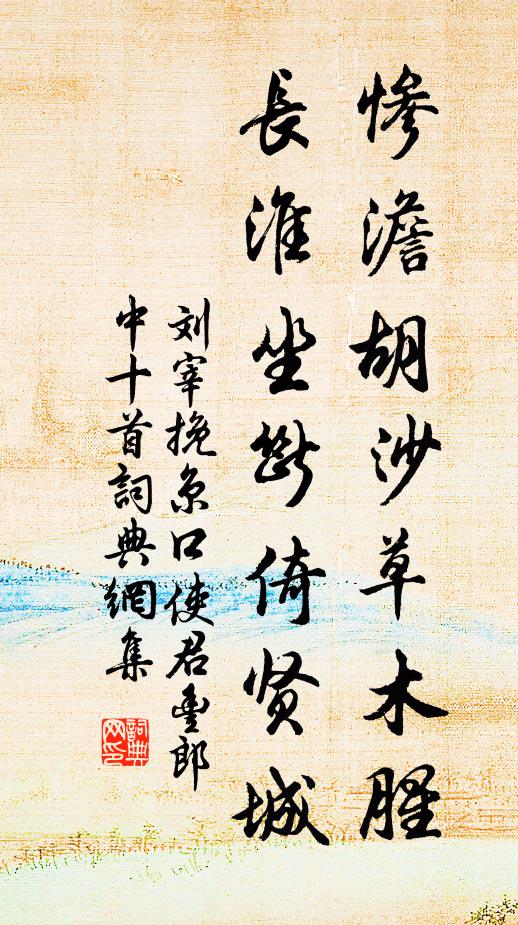 惨澹胡沙草木腥
長淮坐断倚贤城
刘宰挽京口使君豊郎
中十首詞典網集
詞典
网印